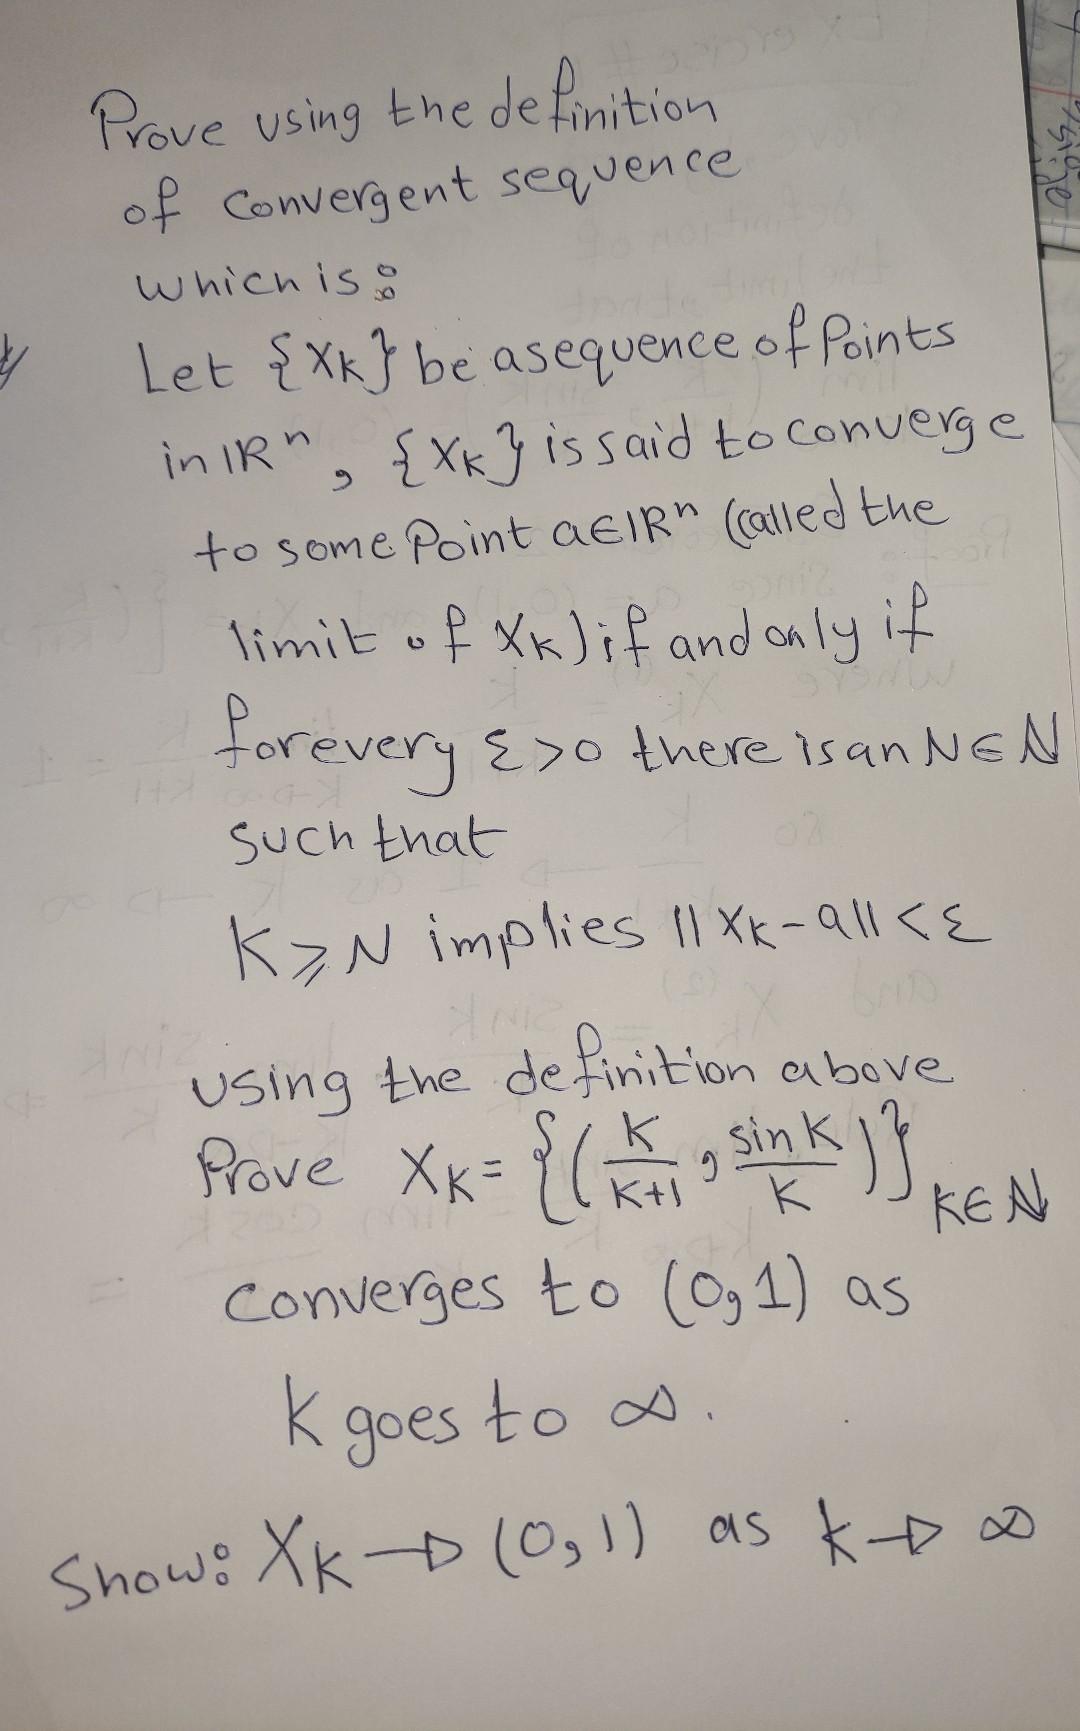 Prove using the definition
of convergent sequence
which is:
Let {Xk} be a sequence of Points
in IR^n, {Xk} is said to converge
to some Point a∈IR^n (called the
limit of Xk) if and only if
for every ε>0 there is an N∈ℕ
such that
K⩾N implies ||Xk-a||<ε
using the definition above
Prove Xk={(K/(K+1), sin K/K)}K∈ℕ
converges to (0,1) as
k goes to ∞.
Show: Xk→(0,1) as k→∞